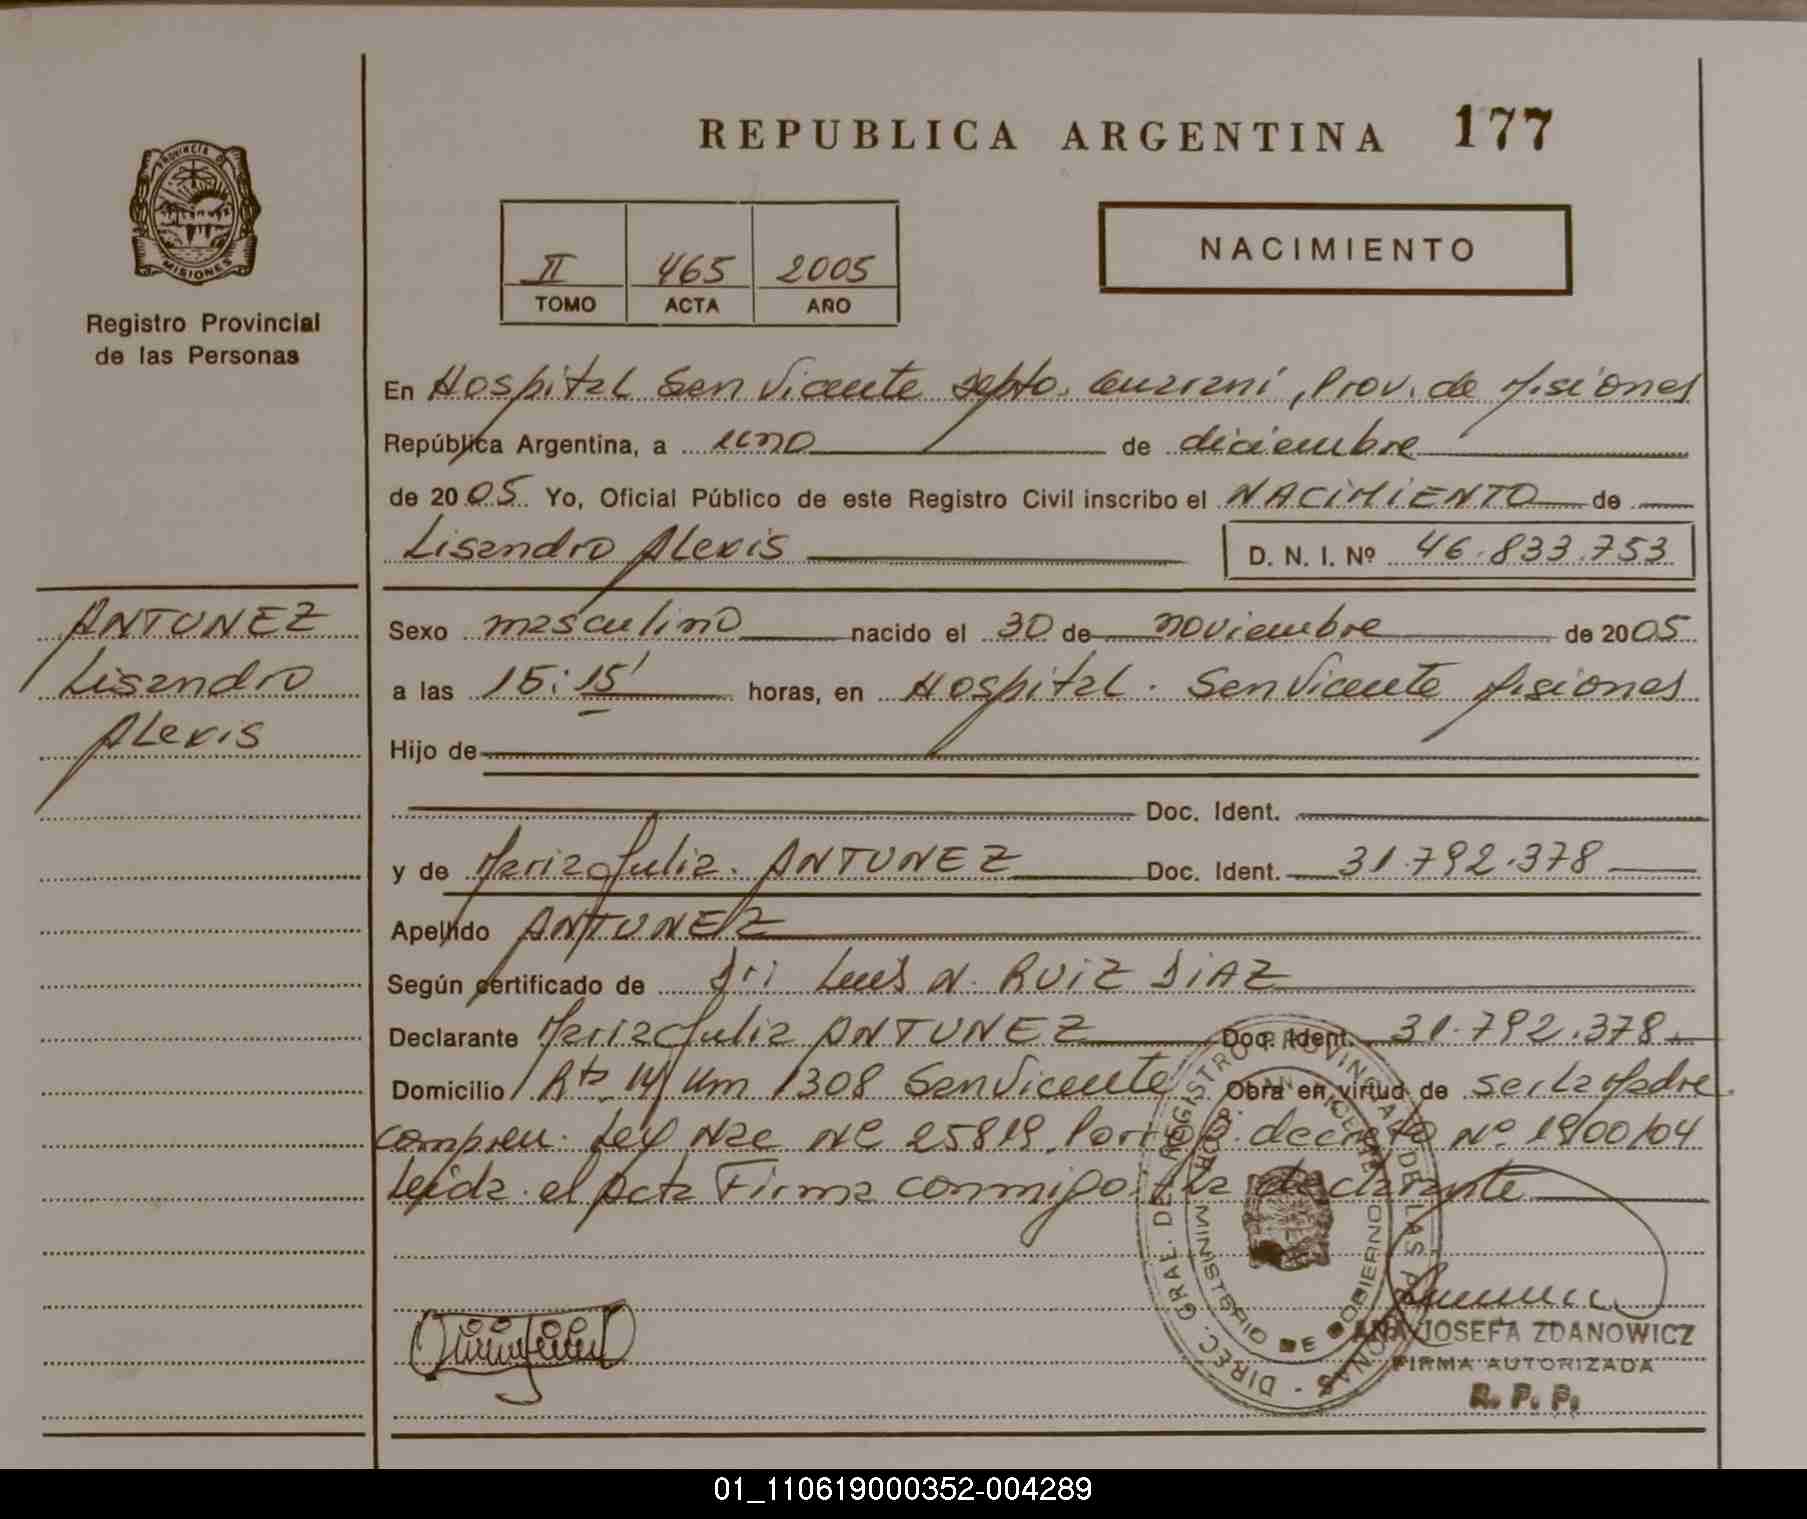 REPUBLICA ARGENTINA 177
PROVINCIA D
MISIONES
Registro Provincial
de las Personas
II 465 2005
TOMO ACTA AÑO
NACIMIENTO
En Hospital San Vicente Depto. Guaraní, Prov. de Misiones
República Argentina, a uno de diciembre
de 2005 Yo, Oficial Público de este Registro Civil inscribo el NACIMIENTO de
Lisandro Alexis D. N. I. Nº 46.833.753
ANTUNEZ
Lisandro
Alexis
Sexo masculino nacido el 30 de noviembre de 2005
a las 15:15' horas, en Hospital. San Vicente Misiones
Hijo de
Doc. Ident.
y de Maria Julia. ANTUNEZ Doc. Ident. 31.792.378
Apellido ANTUNEZ
Según certificado de Dr: Luis N. RUIZ DIAZ
Declarante Maria Julia ANTUNEZ Doc. Ident. 31.792.378
Domicilio Rta 14 Km 1308 San Vicente Obra en virtud de ser la Madre
compren. Ley Nac Nº 25819. Porrog. decreto Nº 1900/04
Leida el Acta Firma conmigo: la declarante
DIREC. GRAL. DE REGISTRO PROVINCIAL DE LAS PERSONAS
HOSP. SAN VICENTE
MINISTERIO DE GOBIERNO
ANA JOSEFA ZDANOWICZ
FIRMA AUTORIZADA
R. P. P.
01_110619000352-004289